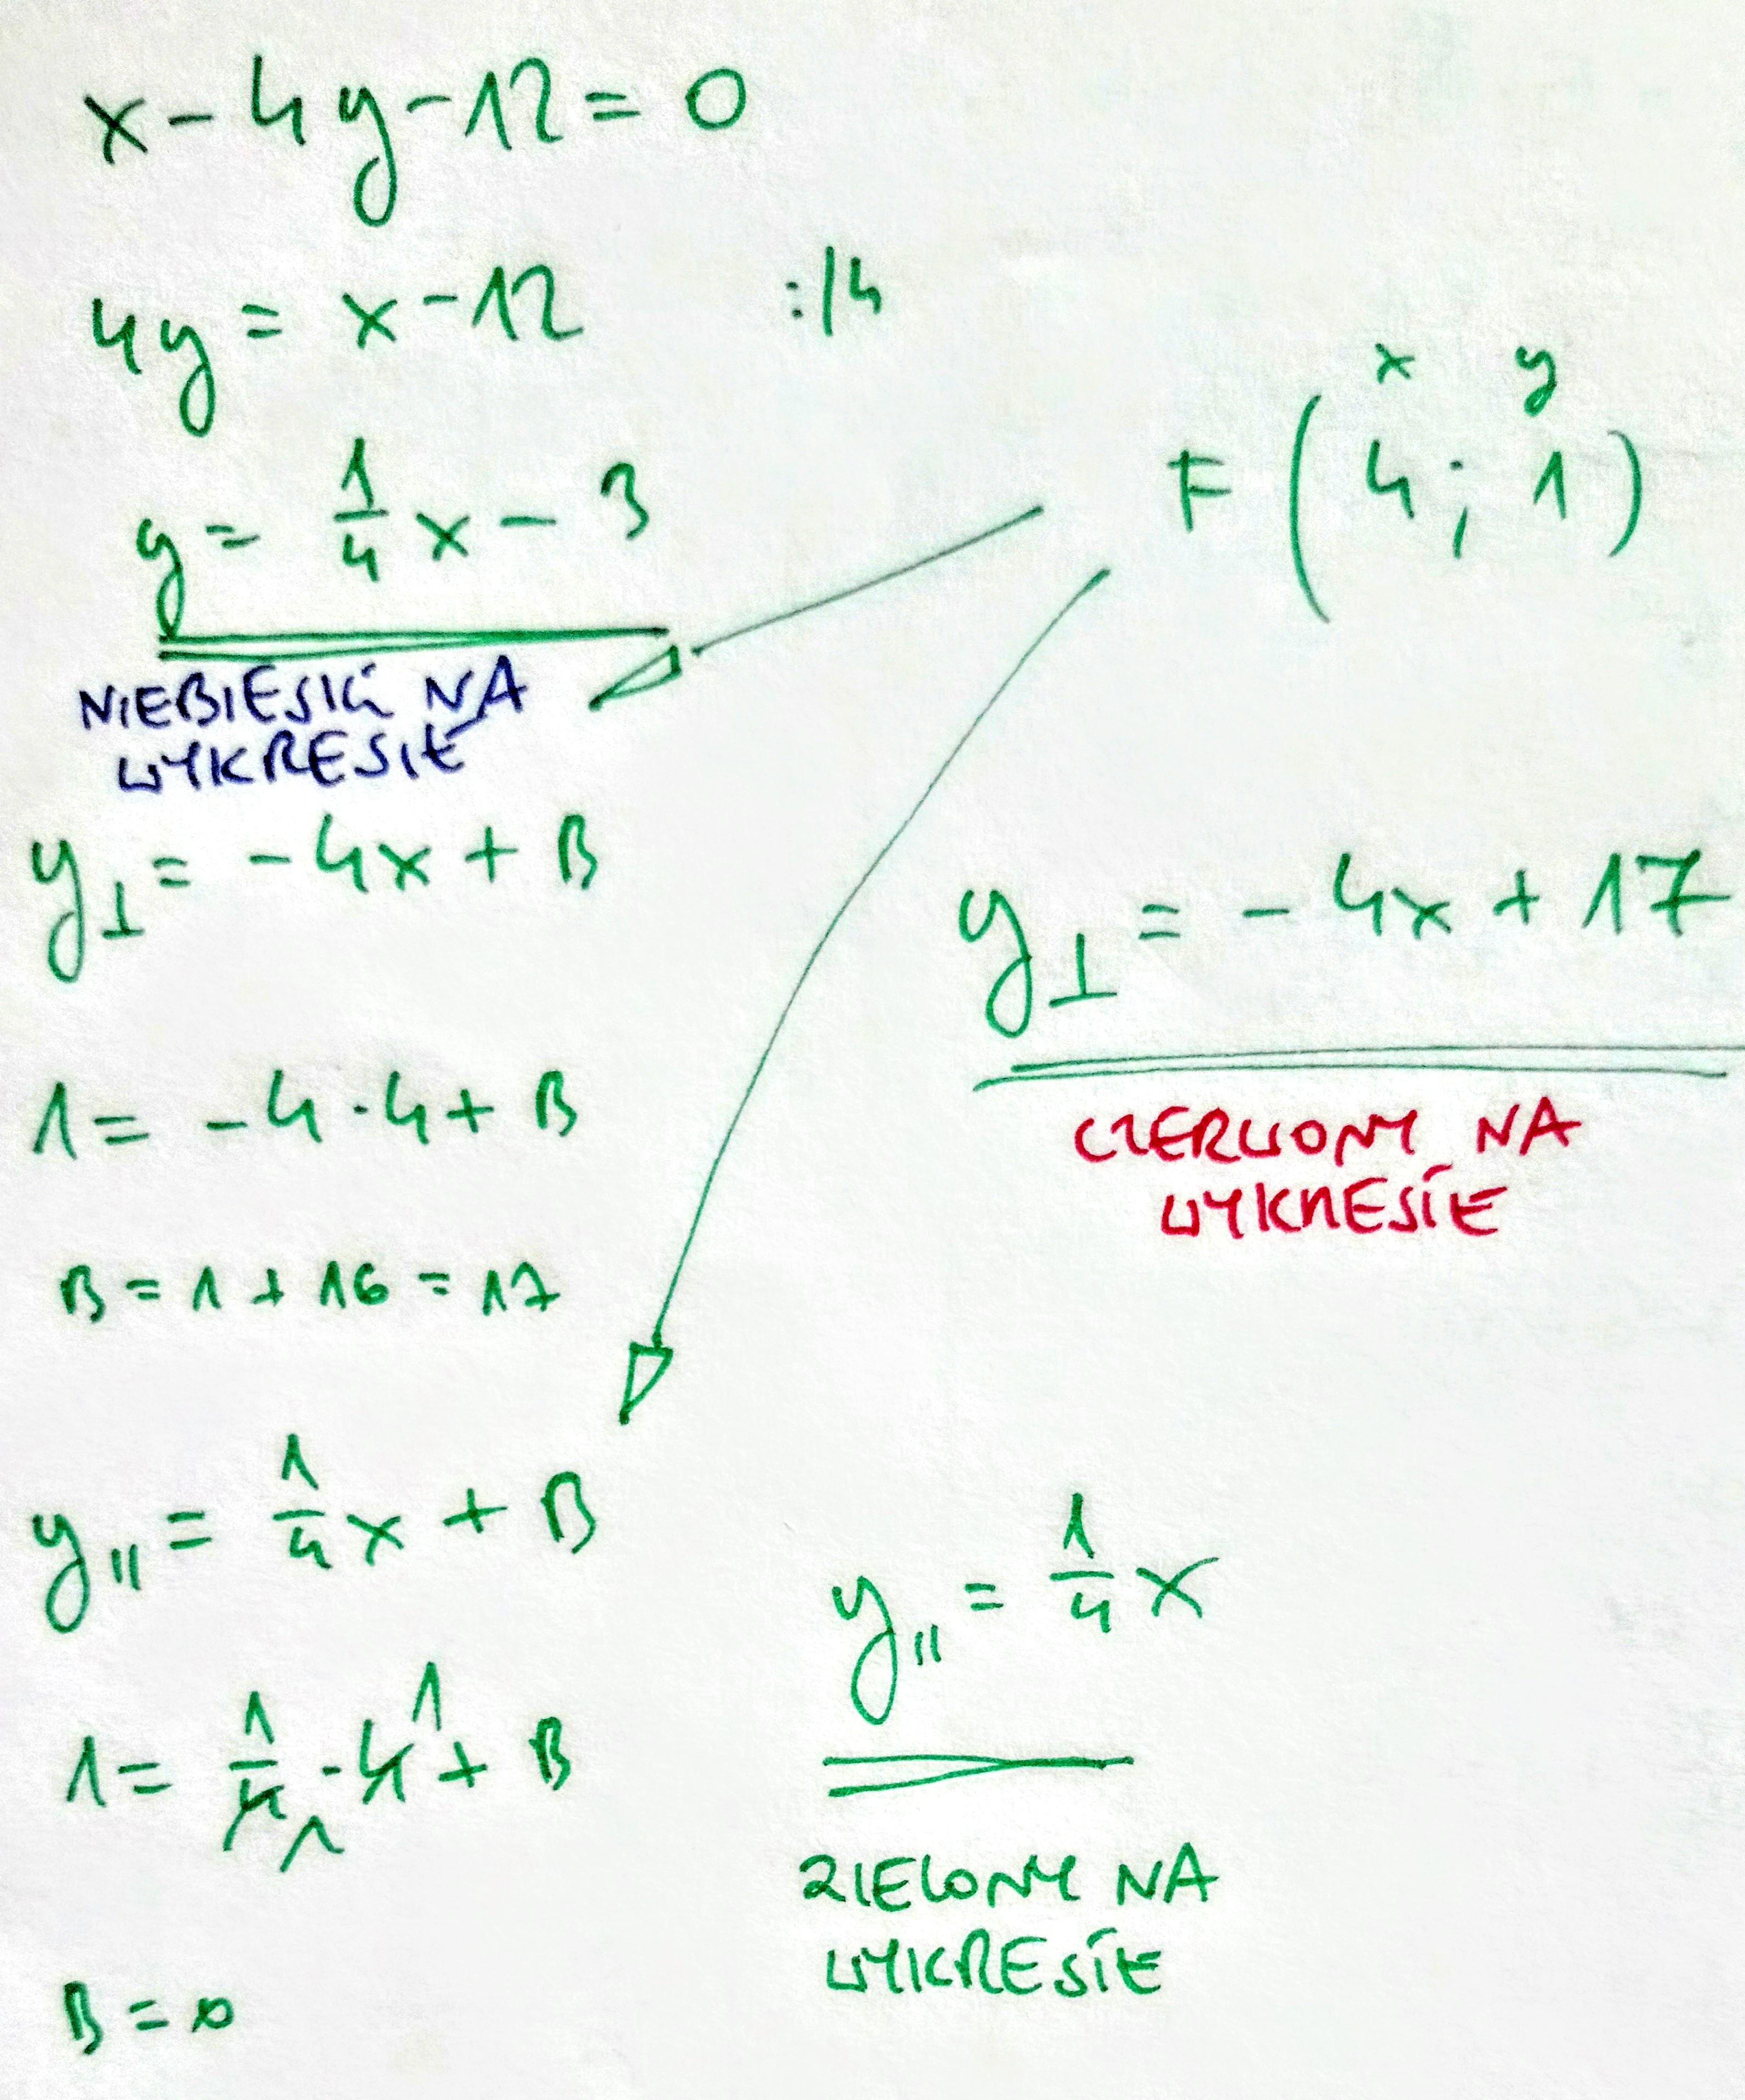 x - 4y - 12 = 0
4y = x - 12 :/4
y = 1/4 x - 3
NIEBIESKI NA
WYKRESIE
x y
F ( 4 ; 1 )
y⊥ = - 4x + B
1 = - 4 · 4 + B
B = 1 + 16 = 17
y⊥ = - 4x + 17
CZERWONY NA
WYKRESIE
y|| = 1/4 x + B
1 = 1/4 1 · 4 1 + B
B = 0
y|| = 1/4 x
ZIELONY NA
WYKRESIE